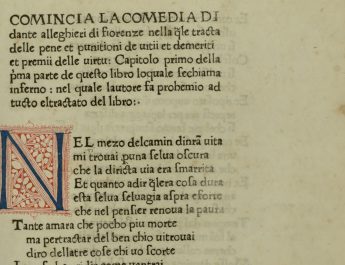 COMINCIA LACOMEDIA DI
dante alleghieri di fiorenze nella q̄le tracta
delle pene et punitioni de uitii et demeriti
et premii delle uirtu: Capitolo primo della
p̄ma parte de questo libro loquale sechiama
inferno: nel quale lautore fa prohemio ad
tucto eltractato del libro:·
NEL mezo delcamin dinr̄a uita
mi trouai p̱una selua oscura
che la diricta uia era smarrita
Et quanto adir q̄lera cosa dura
esta selua seluagia aspra eforte
che nel pensier renoua la paura
Tante amara che pocho piu morte
ma pertractar del ben chio uitrouai
diro dellatre cose chi uo scorte